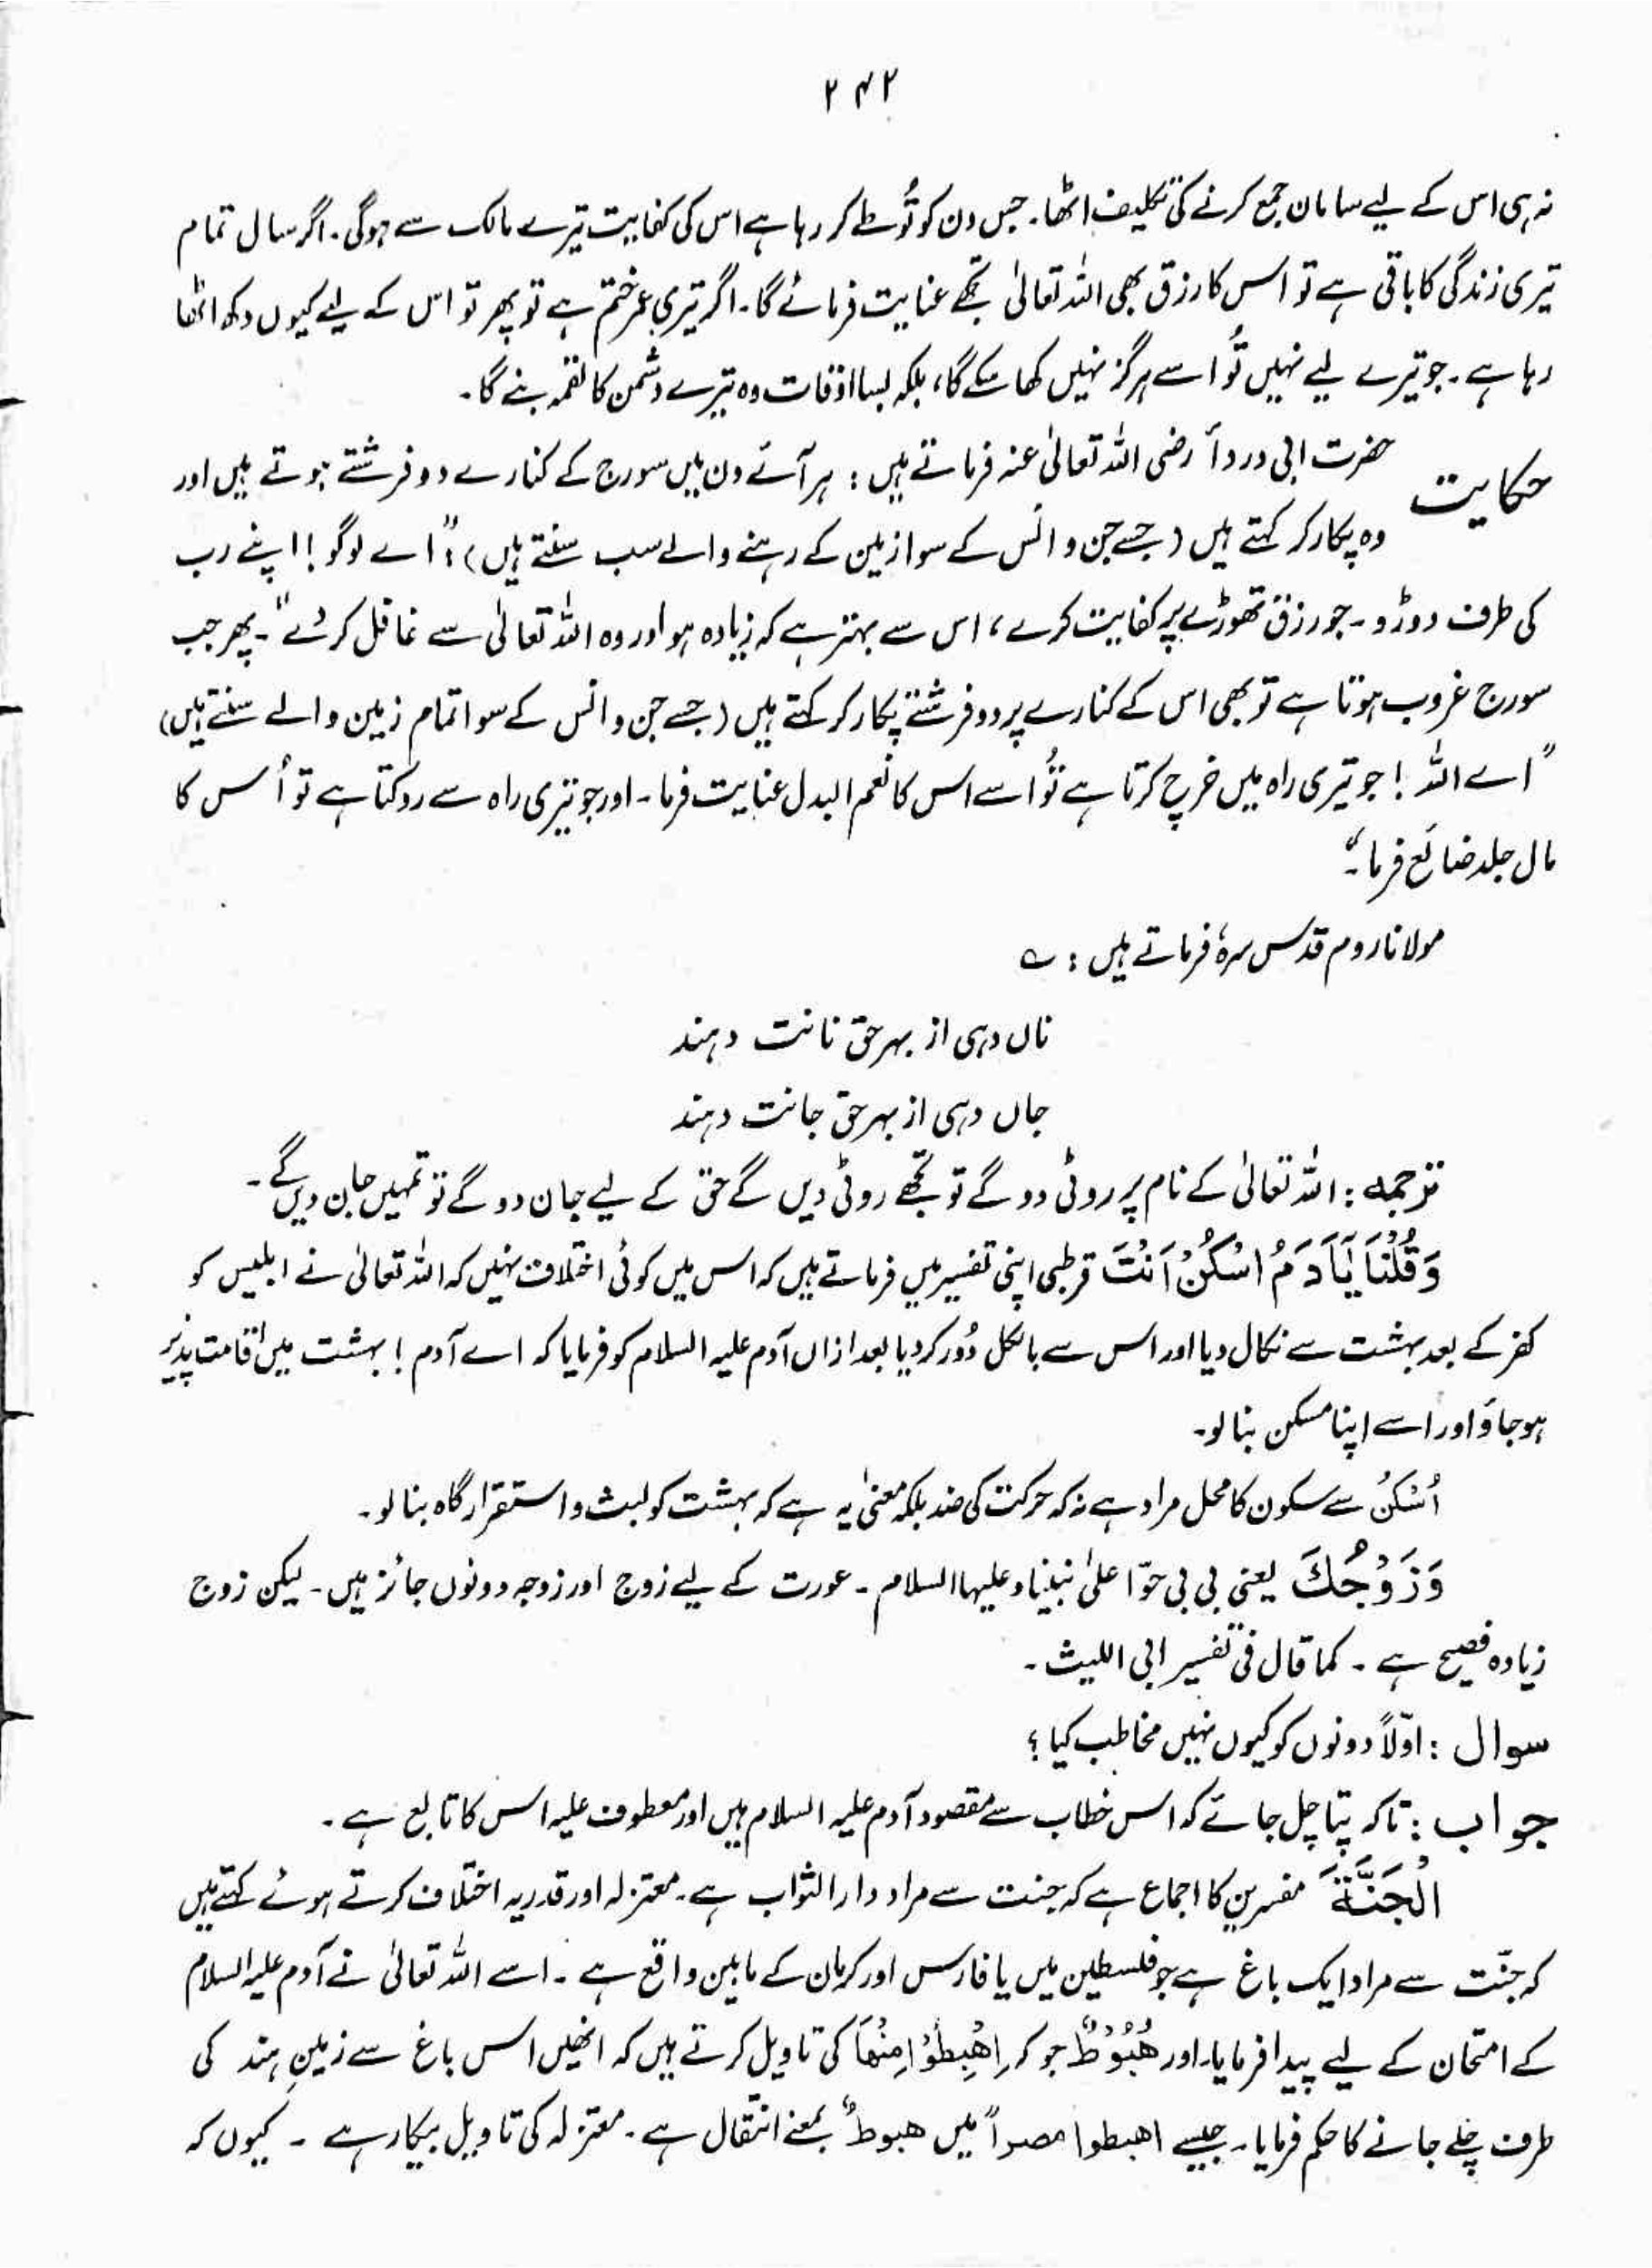 ۲۴۲
نہ ہی اس کے لیے سامان جمع کرنے کی تکلیف اٹھا۔ جس دن کو تُو طے کر رہا ہے اس کی کفایت تیرے مالک سے ہوگی۔ اگر سال تمام
تیری زندگی کا باقی ہے تو اس کا رزق بھی اللہ تعالیٰ تجھے عنایت فرمائے گا۔ اگر تیری عمر ختم ہے تو پھر تو اس کے لیے کیوں دکھ اٹھا
رہا ہے۔ جو تیرے لیے نہیں تُو اسے ہرگز نہیں کھا سکے گا، بلکہ بسا اوقات وہ تیرے دشمن کا لقمہ بنے گا۔
حکایت حضرت ابی درداء رضی اللہ تعالیٰ عنہ فرماتے ہیں : ہر آئے دن میں سورج کے کنارے دو فرشتے ہوتے ہیں اور
وہ پکار کر کہتے ہیں (جسے جن و انس کے سوا زمین کے رہنے والے سب سنتے ہیں) : "اے لوگو! اپنے رب
کی طرف دوڑو۔ جو رزق تھوڑے پر کفایت کرے، اس سے بہتر ہے کہ زیادہ ہو اور وہ اللہ تعالیٰ سے غافل کر دے"۔ پھر جب
سورج غروب ہوتا ہے تو بھی اس کے کنارے پر دو فرشتے پکار کر کہتے ہیں (جسے جن و انس کے سوا تمام زمین والے سنتے ہیں)
"اے اللہ! جو تیری راہ میں خرچ کرتا ہے تُو اسے اس کا نعم البدل عنایت فرما۔ اور جو تیری راہ سے روکتا ہے تو اُس کا
مال جلد ضائع فرما۔"
مولانا روم قدس سرہٗ فرماتے ہیں : ؎
ناں دہی از بہر حق نانت دہند
جاں دہی از بہر حق جانت دہند
ترجمہ : اللہ تعالیٰ کے نام پر روٹی دو گے تو تجھے روٹی دیں گے حق کے لیے جان دو گے تو تمہیں جان دیں گے۔
وَقُلْنَا يٰٓاٰدَمُ اسْكُنْ اَنْتَ قرطبی اپنی تفسیر میں فرماتے ہیں کہ اس میں کوئی اختلاف نہیں کہ اللہ تعالیٰ نے ابلیس کو
کفر کے بعد بہشت سے نکال دیا اور اس سے بالکل دُور کر دیا بعد ازاں آدم علیہ السلام کو فرمایا کہ اے آدم! بہشت میں اقامت پذیر
ہو جاؤ اور اسے اپنا مسکن بنا لو۔
اُسْکُنْ سے سکون کا محل مراد ہے نہ کہ حرکت کی ضد بلکہ معنیٰ یہ ہے کہ بہشت کو لبث و استقرار گاہ بنا لو۔
وَزَوْجُكَ یعنی بی بی حوّا علیٰ نبینا و علیہا السلام۔ عورت کے لیے زوج اور زوجہ دونوں جائز ہیں۔ لیکن زوج
زیادہ فصیح ہے۔ کما قال فی تفسیر ابی اللیث۔
سوال : اوّلاً دونوں کو کیوں نہیں مخاطب کیا؟
جواب : تاکہ پتا چل جائے کہ اس خطاب سے مقصود آدم علیہ السلام ہیں اور معطوف علیہ اس کا تابع ہے۔
الْجَنَّةَ مفسرین کا اجماع ہے کہ جنت سے مراد دار الثواب ہے۔ معتزلہ اور قدریہ اختلاف کرتے ہوئے کہتے ہیں
کہ جنّت سے مراد ایک باغ ہے جو فلسطین میں یا فارس اور کرمان کے مابین واقع ہے۔ اسے اللہ تعالیٰ نے آدم علیہ السلام
کے امتحان کے لیے پیدا فرمایا۔ اور هُبُوْطٌ جو کہ اِهْبِطُوْا مِنْهَا کی تاویل کرتے ہیں کہ انھیں اس باغ سے زمینِ ہند کی
طرف چلے جانے کا حکم فرمایا۔ جیسے اهبطوا مصراً میں هبوطٌ بمعنے انتقال ہے۔ معتزلہ کی تاویل بیکار ہے۔ کیوں کہ